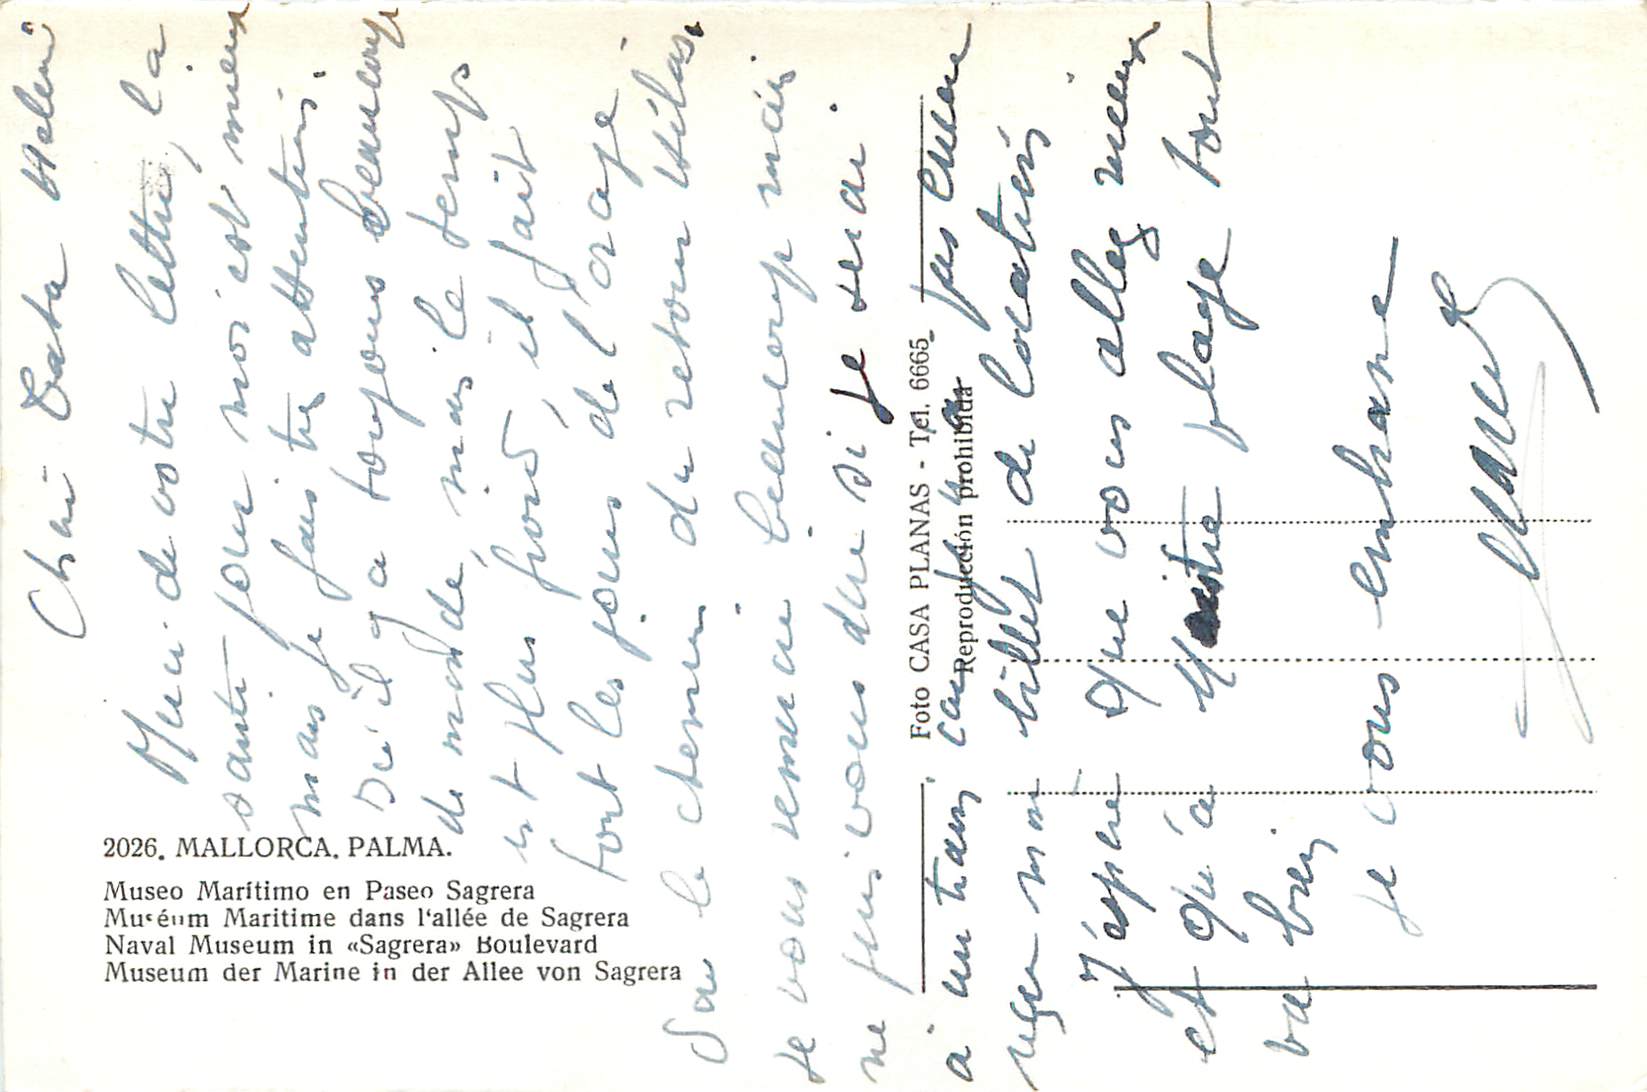 2026. MALLORCA. PALMA.
Museo Marítimo en Paseo Sagrera
Muséum Maritime dans l'allée de Sagrera
Naval Museum in «Sagrera» Boulevard
Museum der Marine in der Allee von Sagrera
Foto CASA PLANAS - Tel. 6665
Reproducción prohibida
Chère Tata
Merci de votre lettre, la
santé pour moi est mieux
mais je fais très attention.
Ici il y a toujours beaucoup
de monde, mais le temps
est plus froid, il fait
tout les jours de l'orage
Sur le chemin de retour hélas.
Je vous remercie beaucoup mais
ne puis vous dire si je serai
à un train car pas encore
reçu mon billet de location
J'espère que vous allez mieux
et qu'à plage tout
va bien
Je vous embrasse